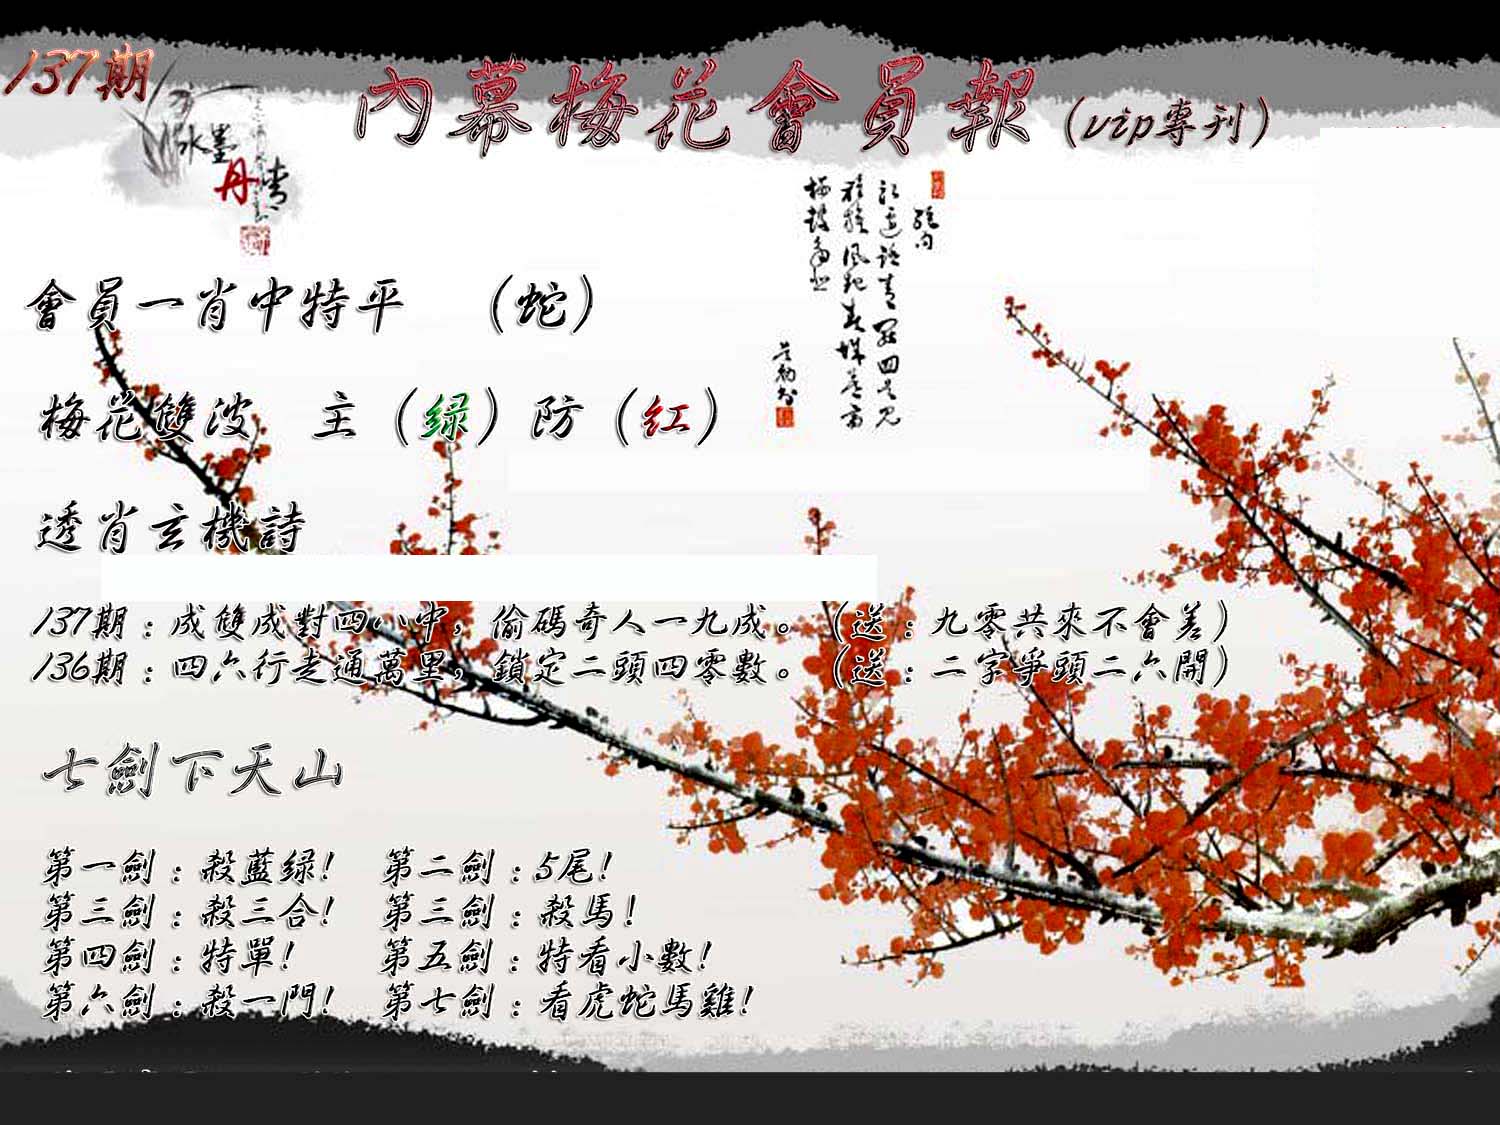 137期
內幕梅花會員報（vip專刊）
水墨
丹青
絕句
會員一肖中特平 （蛇）
梅花雙波 主（绿）防（红）
透肖玄機詩
137期：成雙成對四八中，偷碼奇人一九成。（送：九零共來不會差）
136期：四六行走通萬里，鎖定二頭四零數。（送：二字爭頭二六開）
七劍下天山
第一劍：殺藍绿！ 第二劍：5尾！
第三劍：殺三合！ 第三劍：殺馬！
第四劍：特單！ 第五劍：特看小數！
第六劍：殺一門！ 第七劍：看虎蛇馬雞！